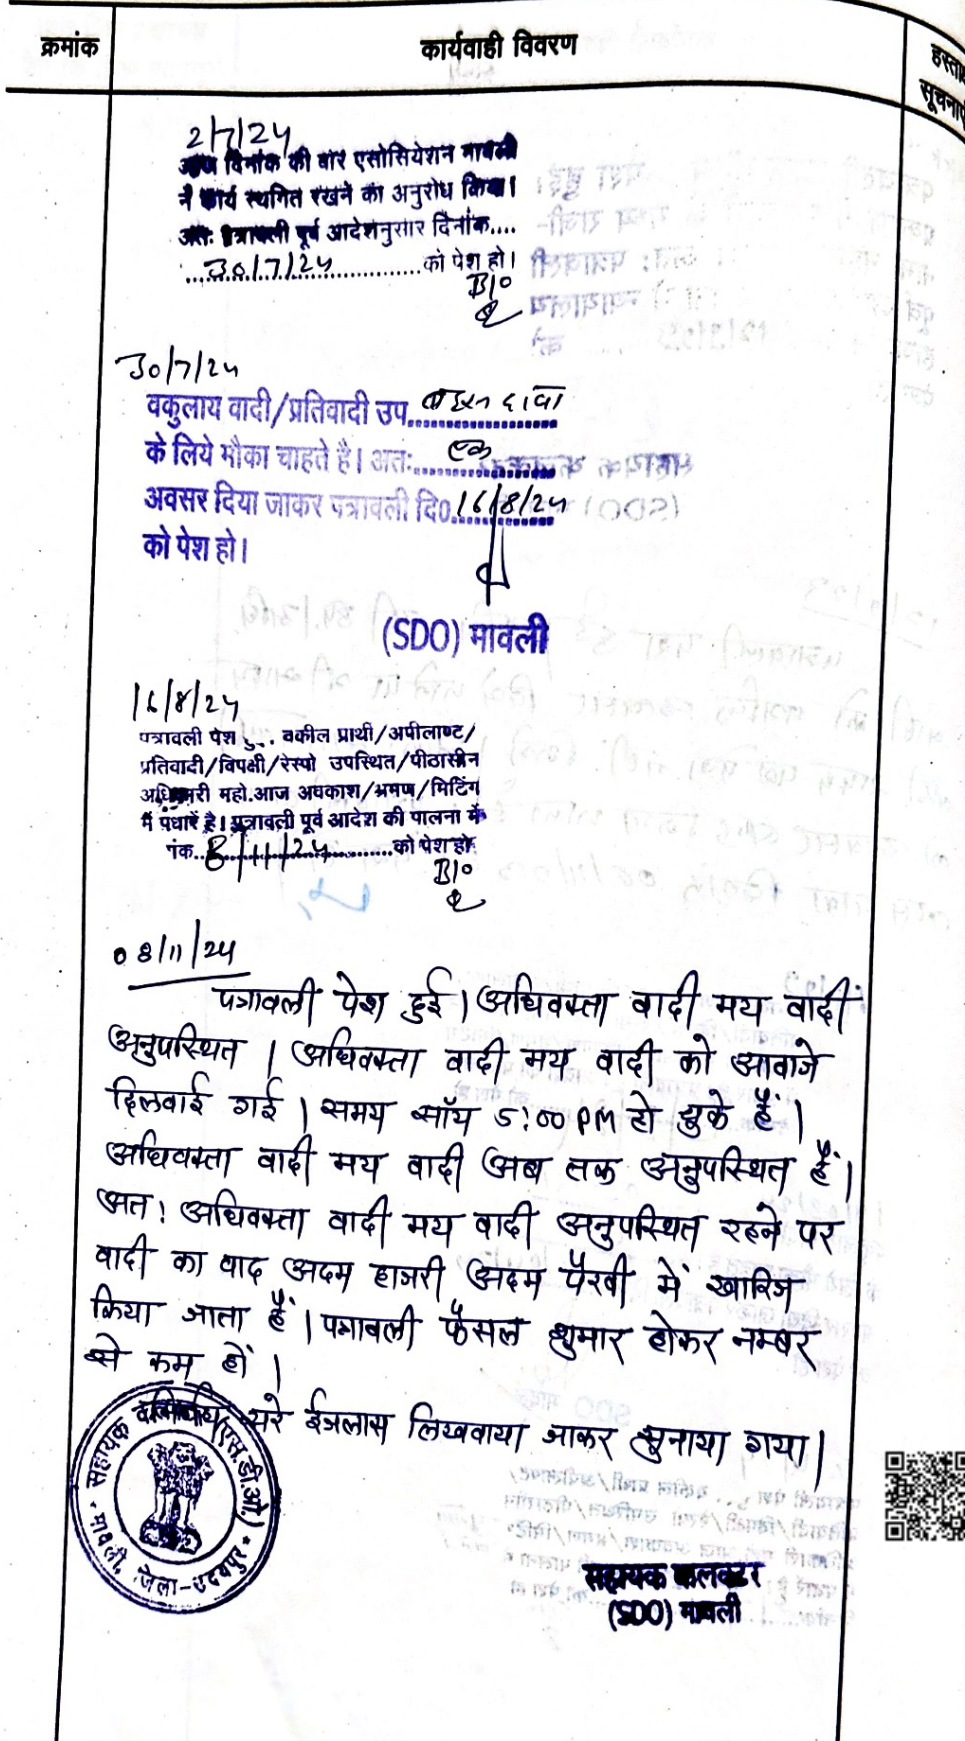 क्रमांक
कार्यवाही विवरण
2/7/24
आज दिनांक की वार एसोसियेशन मावली
ने कार्य स्थगित रखने का अनुरोध किया।
अतः पत्रावली पूर्व आदेशनुसार दिनांक....
30/7/24 को पेश हो।
B/o
30/7/24
वकुलाय वादी/प्रतिवादी उप. दावा
के लिये मौका चाहते है। अतः एक
अवसर दिया जाकर पत्रावली दि0 16/8/24
को पेश हो।
(SDO) मावली
16/8/24
पत्रावली पेश हु... वकील प्रार्थी/अपीलाण्ट/
प्रतिवादी/विपक्षी/रेस्पो उपस्थित/पीठासीन
अधिकारी महो.आज अवकाश/भ्रमण/मिटिंग
में पधारें है। पत्रावली पूर्व आदेश की पालना में
नंक. 8/11/24 को पेश हो
B/o
08/11/24
पत्रावली पेश हुई। अधिवक्ता वादी मय वादी
अनुपस्थित। अधिवक्ता वादी मय वादी को आवाजे
दिलवाई गई। समय सॉय 5:00 PM हो चुके हैं।
अधिवक्ता वादी मय वादी अब तक अनुपस्थित हैं।
अत: अधिवक्ता वादी मय वादी अनुपस्थित रहने पर
वादी का वाद अदम हाजरी अदम पैरवी में खारिज
किया जाता हैं। पत्रावली फैसल शुमार होकर नम्बर
से कम हों।
सरे ईजलास लिखवाया जाकर सुनाया गया।
सहायक (एस.डी.ओ.)
मावली, जिला-उदयपुर
सहायक कलक्टर
(SDO) मावली